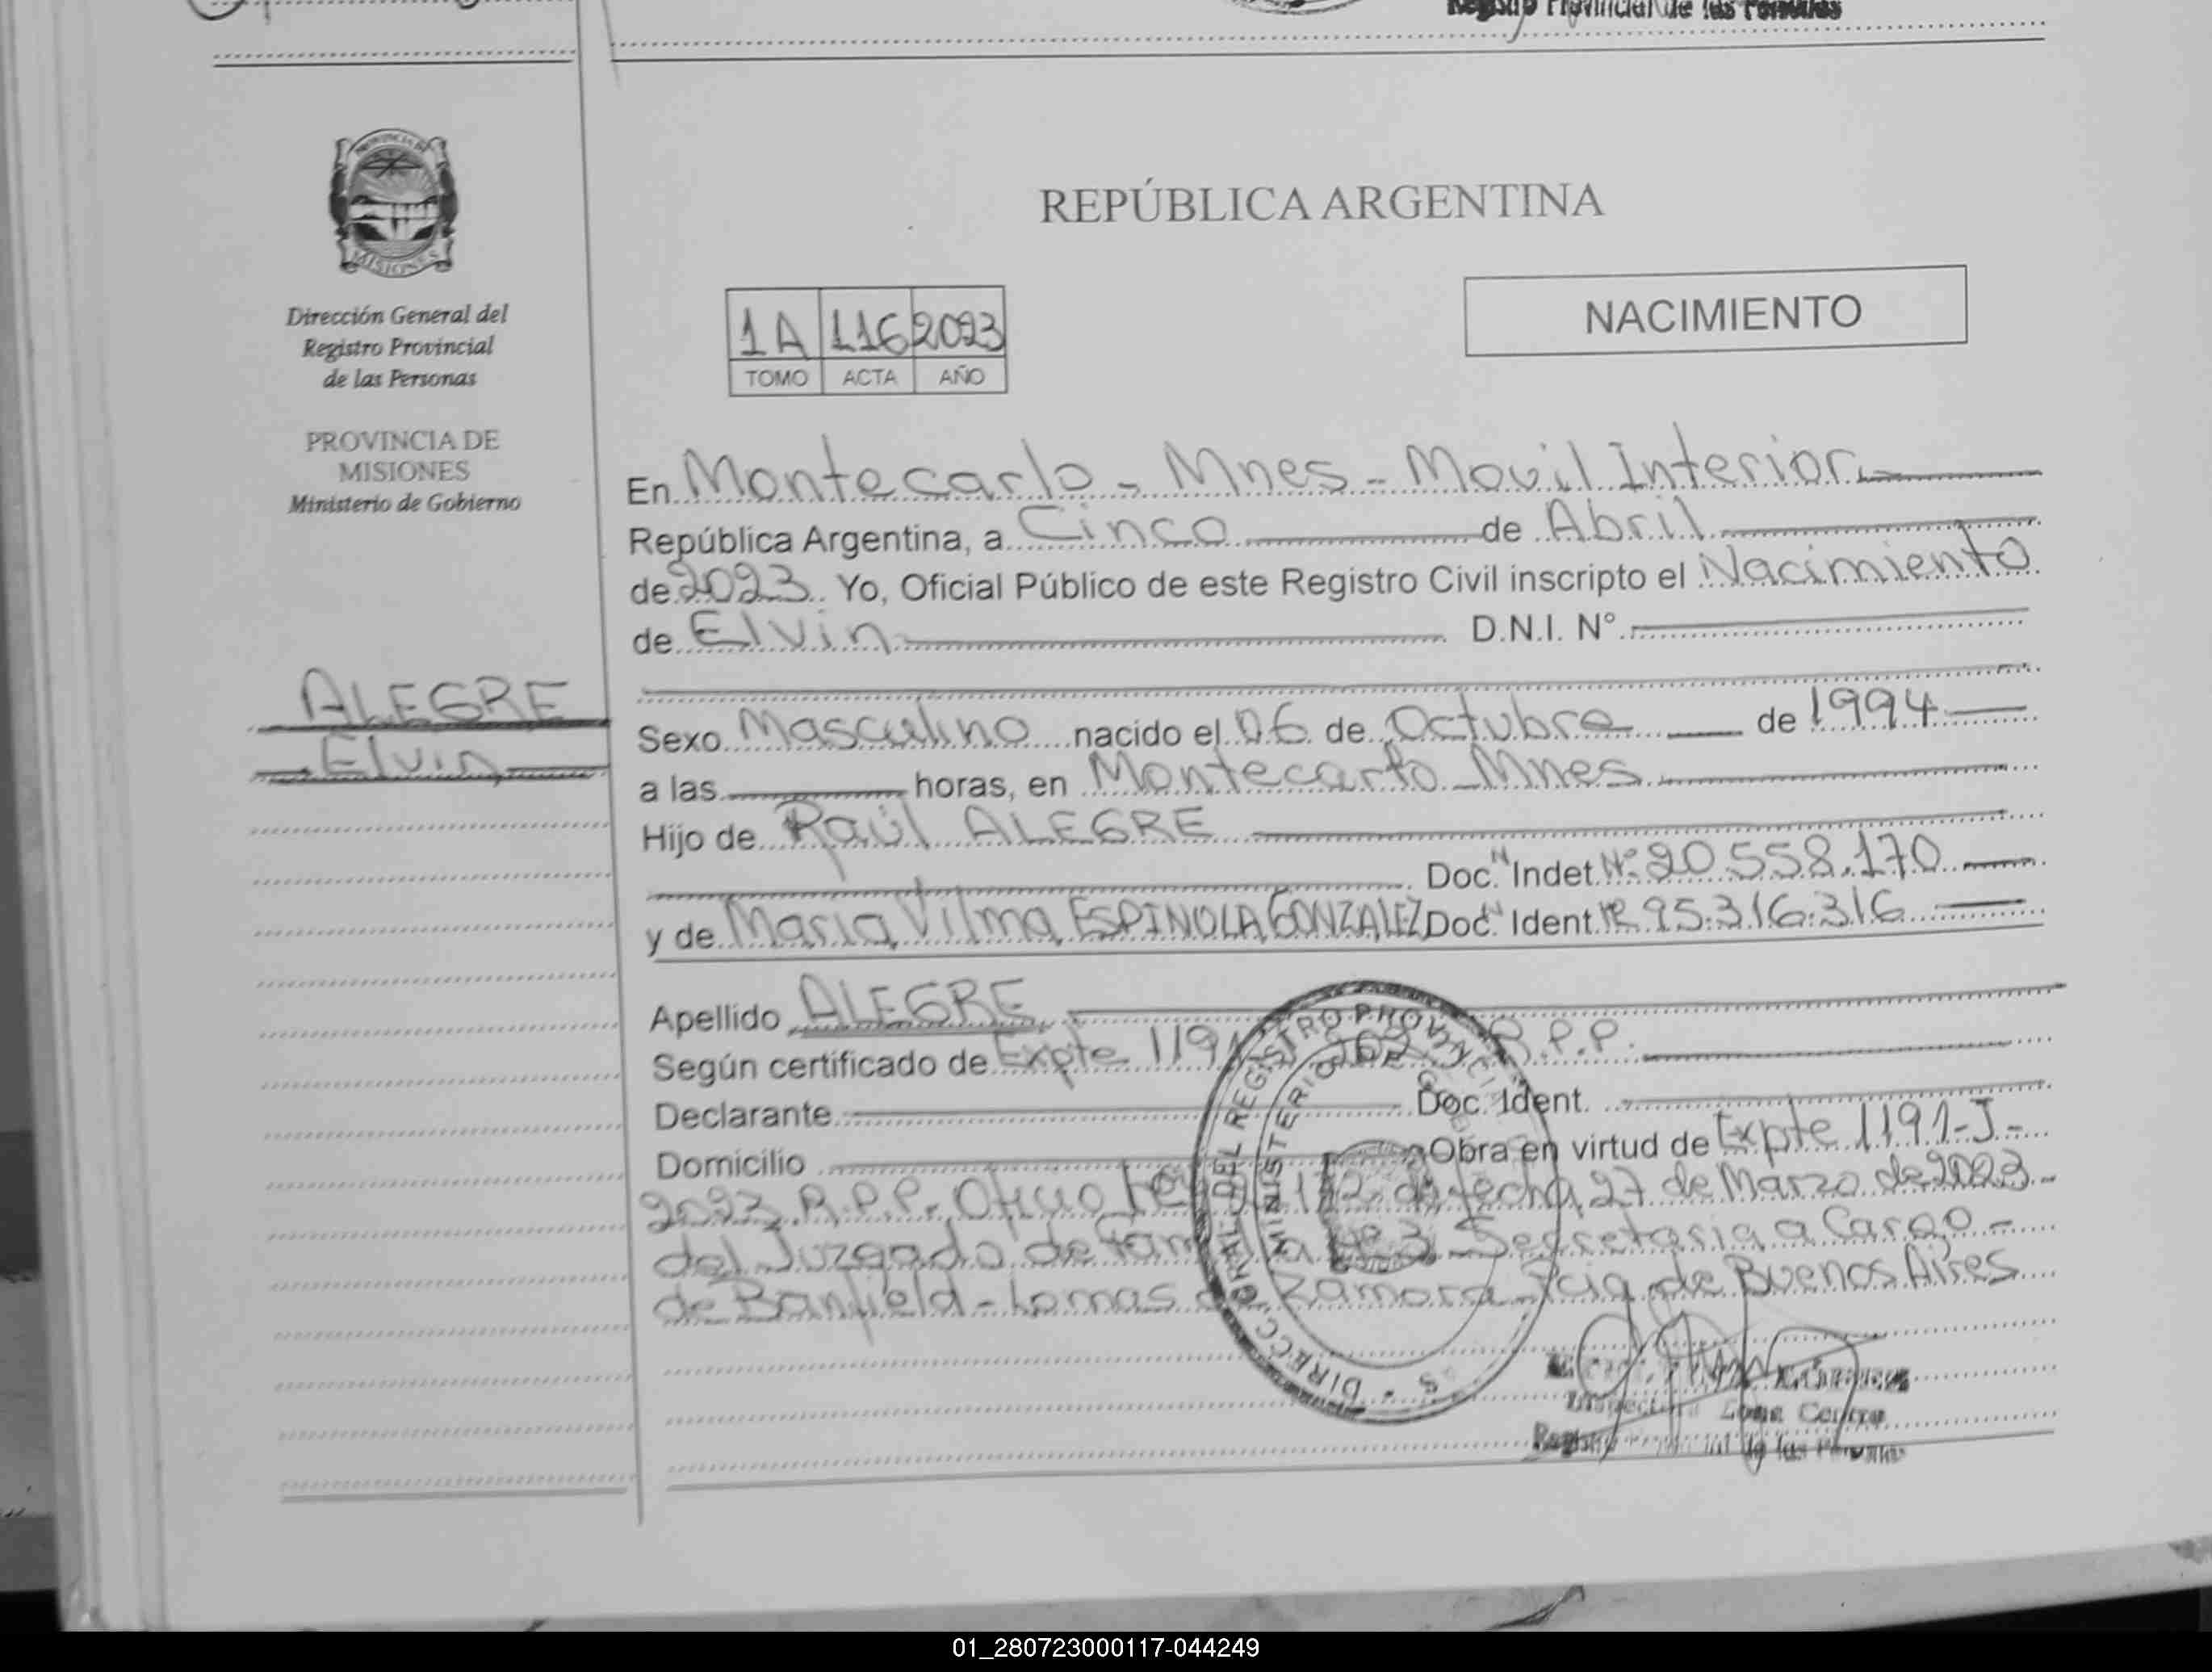 Registro Provincial de las Personas
PROVINCIA DE
MISIONES
Dirección General del
Registro Provincial
de las Personas
PROVINCIA DE
MISIONES
Ministerio de Gobierno
ALEGRE
Elvin
REPÚBLICA ARGENTINA
NACIMIENTO
1A 116 2023
TOMO ACTA AÑO
En Montecarlo - Mnes - Movil Interior
República Argentina, a Cinco de Abril
de 2023 Yo, Oficial Público de este Registro Civil inscripto el Nacimiento
de Elvin D.N.I. N°
Sexo Masculino nacido el 06 de Octubre de 1994
a las horas, en Montecarlo - Mnes
Hijo de Raúl ALEGRE
Doc. Indet. N° 20.558.170
y de Maria Vilma ESPINOLA GONZALEZ Doc. Ident. N° 95.316.316
Apellido ALEGRE
Según certificado de Expte 1191 R.P.P.
Declarante Doc. Ident.
Domicilio Obra en virtud de Expte 1191-J-
2023 R.P.P. Oficio de fecha 27 de Marzo de 2023
del Juzgado de Familia N° 3 Secretaria a Cargo -
de Banfield - Lomas de Zamora - Pcia de Buenos Aires
DIRECC GRAL DEL REGISTRO PROVINCIAL
MINISTERIO DE
Inspectora Zona Centro
Registro Provincial de las Personas
01_280723000117-044249